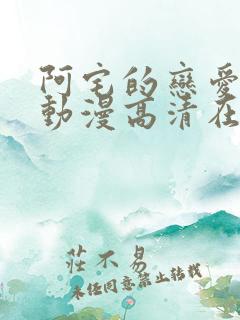 阿宅的戀愛
動漫高清在
莊不易
未经同意禁止转载